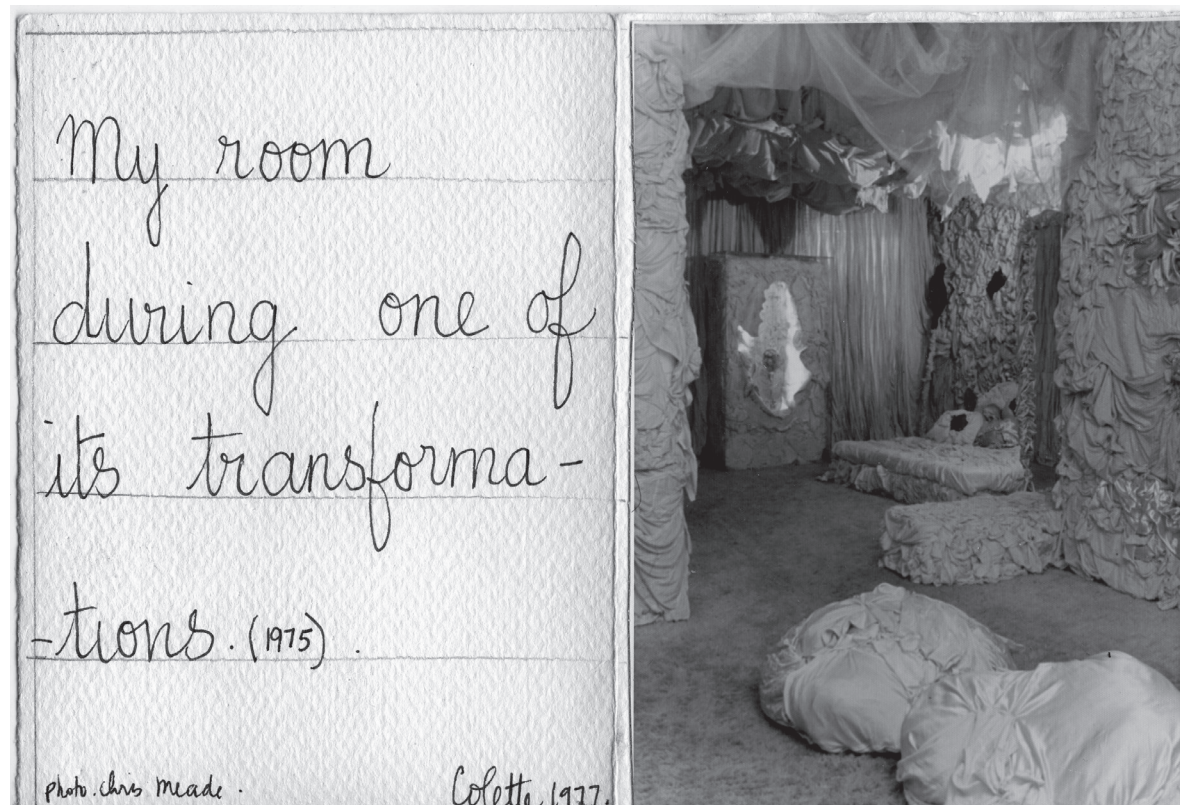 My room
during one of
its transforma-
-tions. (1975).
photo. chris meade.
Colette 1977.